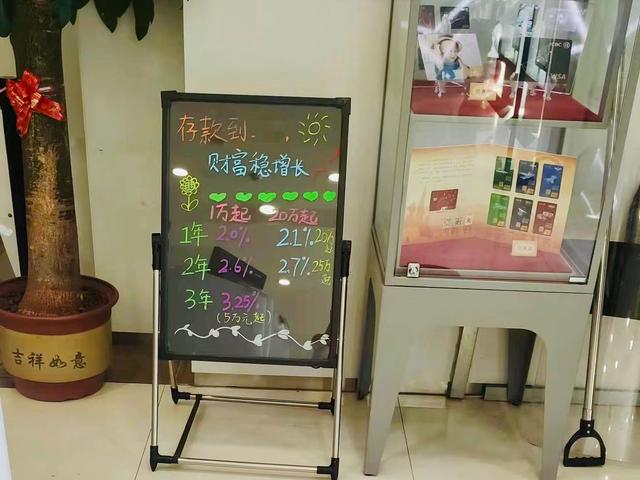 存款到
财富稳增长
1万起 20万起
1年 2.0% 2.1% 20万起
2年 2.6% 2.7% 25万起
3年 3.25%
(5万元起)
吉祥如意
VISA